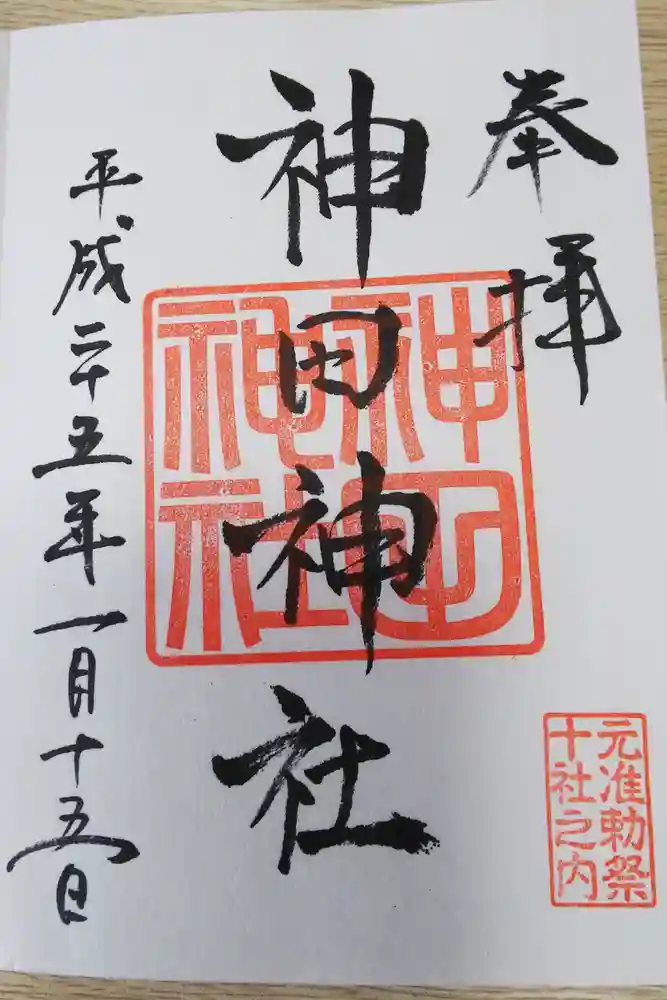 奉拝
神田神社
神田
神社
平成二十五年一月十五日
元准勅祭
十社之内